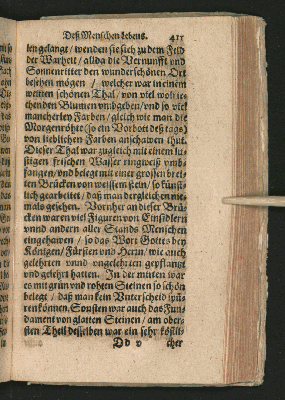 Deß Menschen lebens. 411
len gelange / wenden sie sich zu dem Feld
der Warheit / allda die Vernunfft vnd
Sonnenritter den wunderschönen Ort
besehen mögen / welcher war in einem
weiten schönen Thal / von viel wol rie-
chenden Blumen vmbgeben / vnd so viel
mancherley Farben / gleich wie man die
Morgenröhte (so ein Vorbott deß tags)
von lieblichen Farben anschawen thut.
Dieser Thal war zugleich mit einem lu-
stigen frischen Wasser ringweiß vmb-
fangen / vnd belegt mit einer grossen brei-
ten Brücken von weissem stein / so künst-
lich gearbeitet / daß man dergleichen nie-
mals gesehen. Vornher an dieser Brü-
cken waren viel Figuren von Einsidlern
vnnd andern aller Stands Menschen
eingehawen / so das Wort Gottes bey
Königen / Fürsten vnd Herrn / wie auch
gelehrten vnnd vngelehrten gepflantzt
vnd gelehrt hatten. In der mitten war
es mit grün vnd rohten Steinen so schön
belegt / daß man kein Vnterscheid spü-
ren können. Sonsten war auch das Fun-
dament von glatten Steinen / am ober-
sten Theil desselben war ein sehr köstli-
Dd v cher